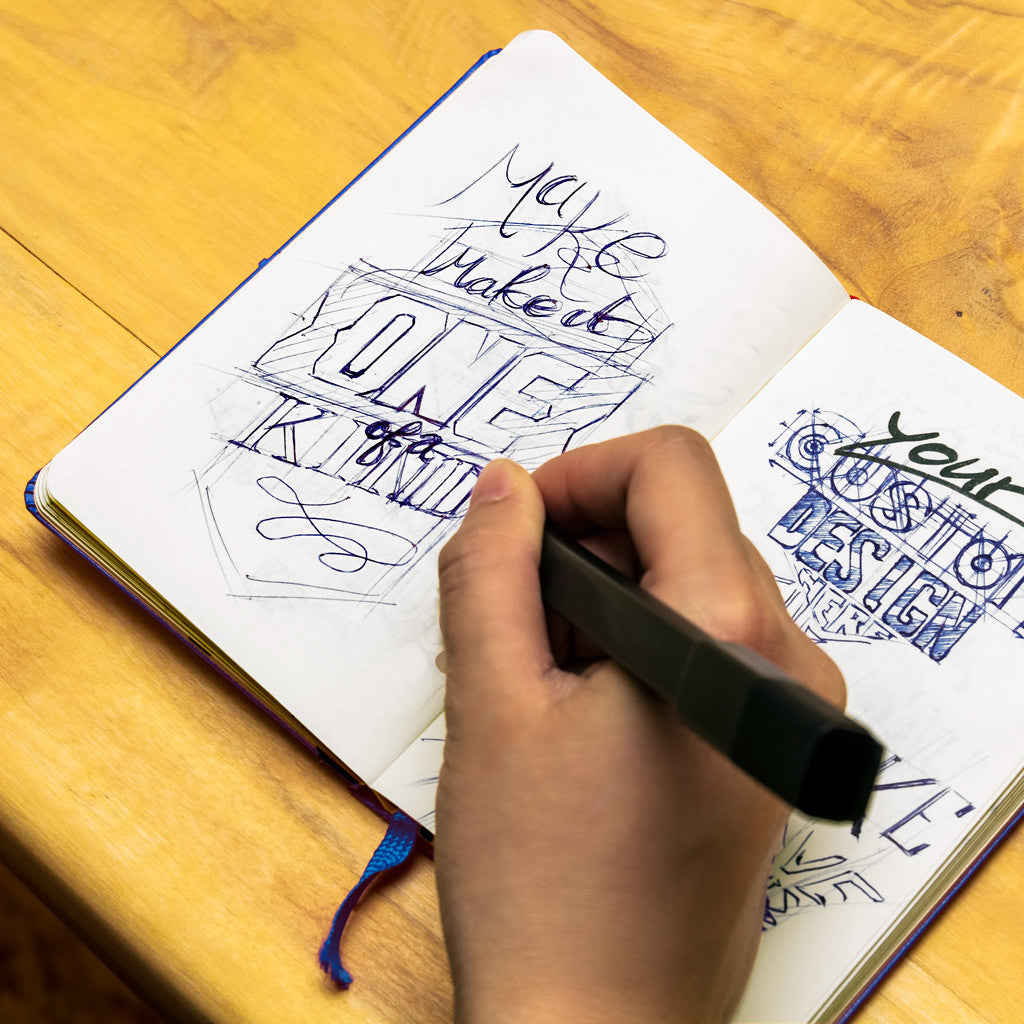 Make
Make it
ONE
of a
KIND
Your
CUSTOM
DESIGN
HERE